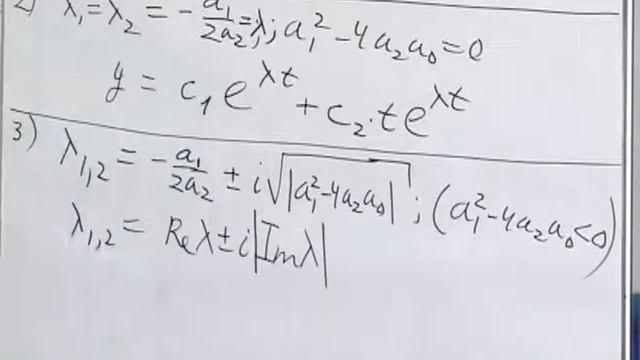 2) λ₁=λ₂ = -a₁/2a₂ = λ; a₁² - 4a₂a₀ = 0
y = c₁e^λt + c₂·te^λt
3) λ₁,₂ = -a₁/2a₂ ± i√|a₁²-4a₂a₀| ; (a₁²-4a₂a₀<0)
λ₁,₂ = Reλ ± i|Imλ|